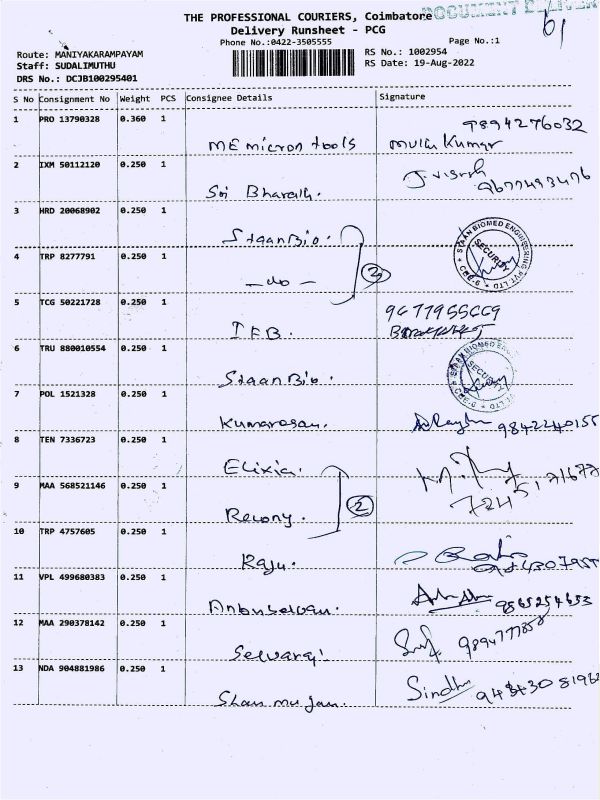 THE PROFESSIONAL COURIERS, Coimbatore
DOCUMENT DELIVER
Delivery Runsheet - PCG
61
Phone No.:0422-3505555
Page No.:1
Route: MANIYAKARAMPAYAM
RS No.: 1002954
Staff: SUDALIMUTHU
RS Date: 19-Aug-2022
DRS No.: DCJB100295401
S No Consignment No Weight PCS Consignee Details Signature
1 PRO 13790328 0.360 1
9894276032
ME micron tools Muthu Kumar
2 IXM 50112120 0.250 1
Sri Bharath. 9677493476
3 HRD 20068902 0.250 1
Staan Bio.
STAAN BIOMED ENGINEERING PVT LTD * CBE-6 * SECURITY
4 TRP 8277791 0.250 1
- do -
5 TCG 50221728 0.250 1
9677955669
IFB.
6 TRU 880010554 0.250 1
Staan Bio.
STAAN BIOMED ENG PVT LTD SECURITY
7 POL 1521328 0.250 1
Kumaresan. 9842240155
8 TEN 7336723 0.250 1
Elixia.
9 MAA 568521146 0.250 1
2
Recony.
10 TRP 4757605 0.250 1
Raju.
11 VPL 499680383 0.250 1
Anbuselvan. 9865254653
12 MAA 290378142 0.250 1
Selvaraj. 9894777858
13 NDA 904881986 0.250 1
Sindhu
Shanmugam.